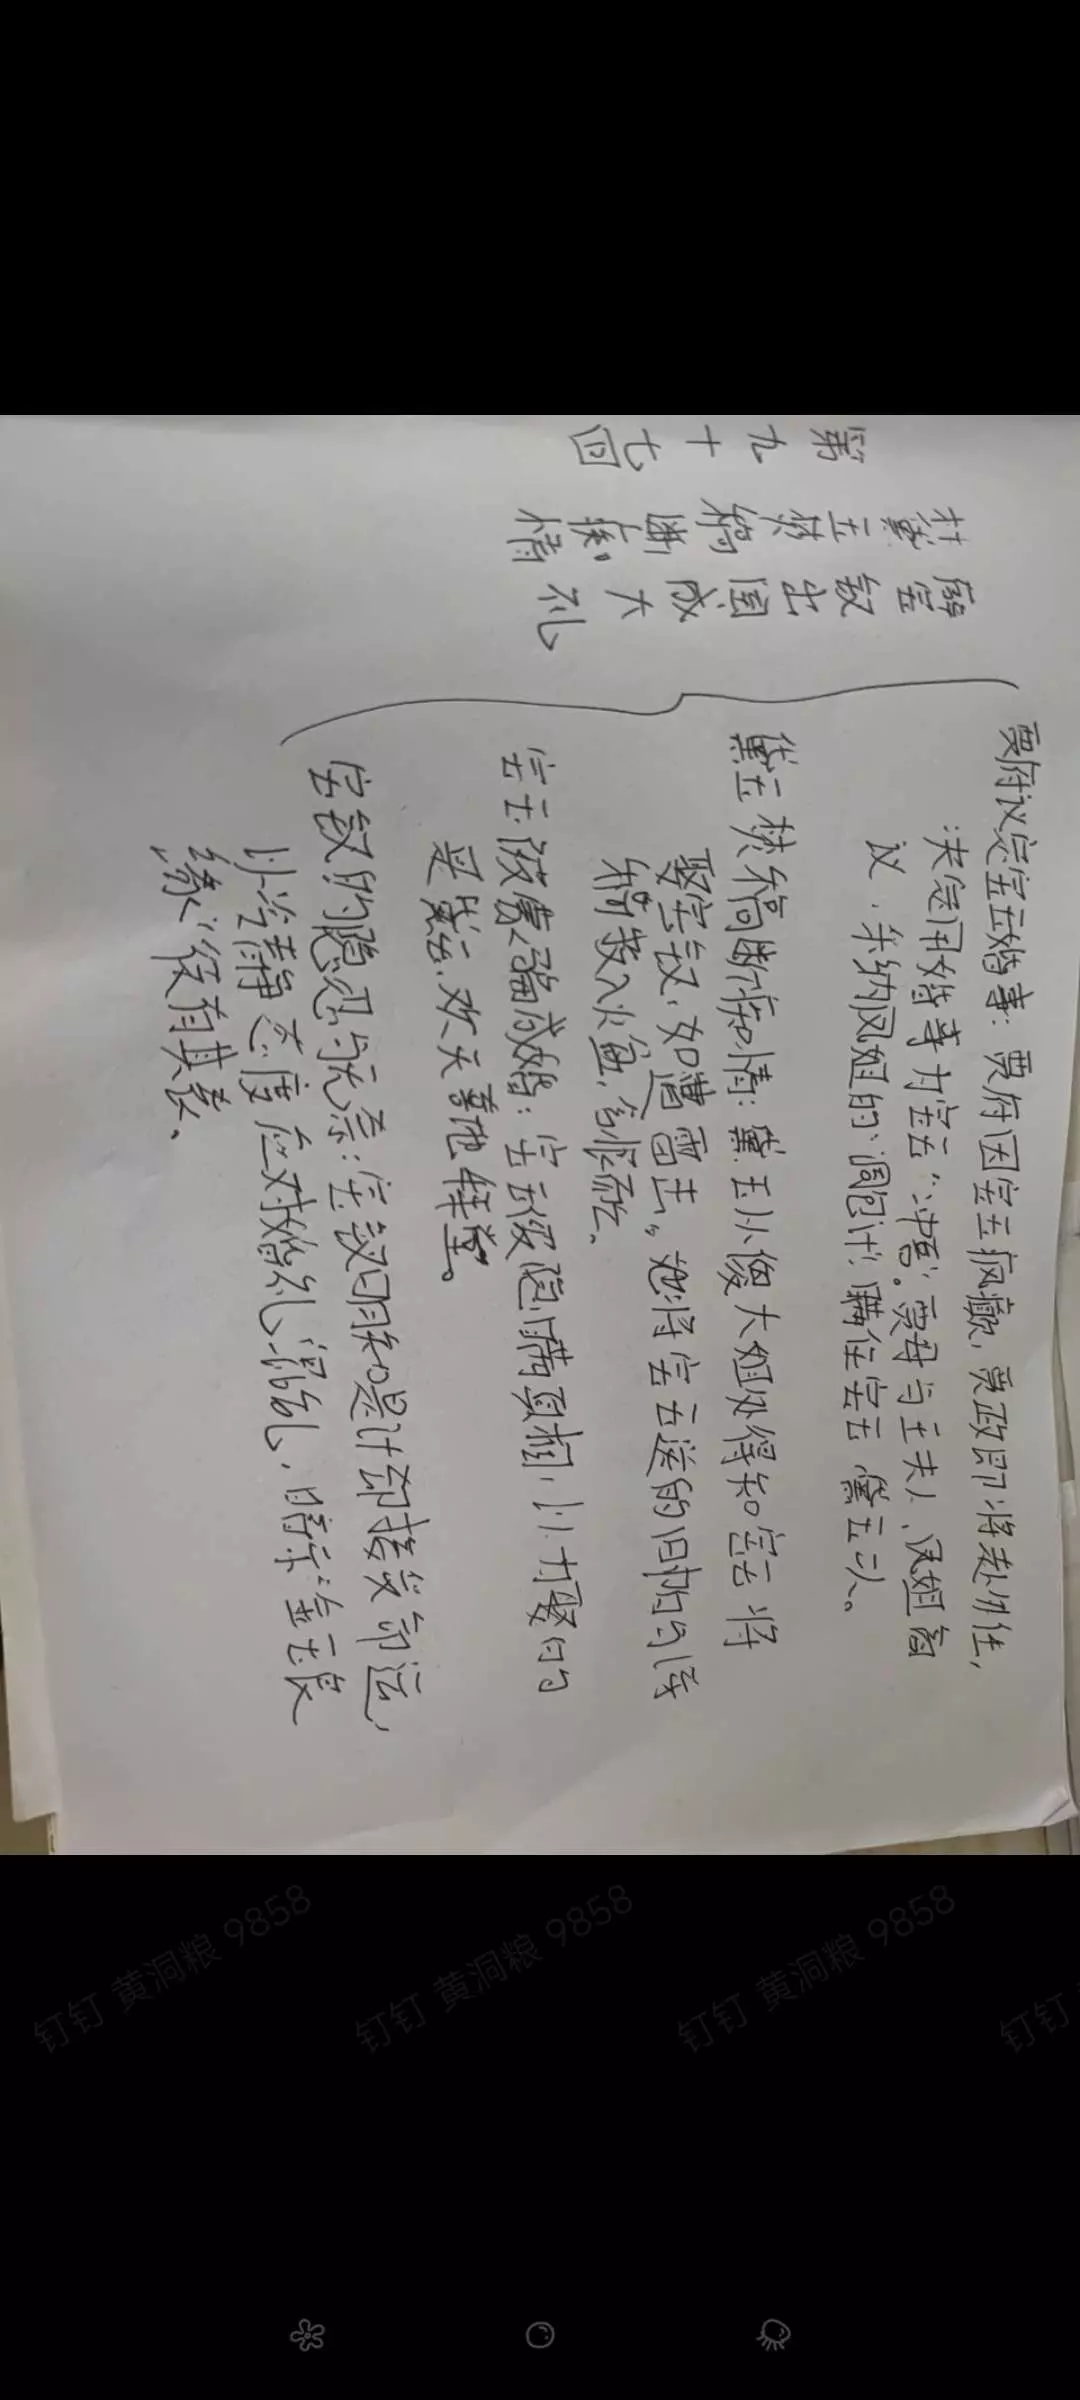 第九十七回
林黛玉焚稿断痴情
薛宝钗出闺成大礼
贾府议定宝玉婚事：贾府因宝玉疯癫，贾政即将赴外任，
决定用婚事为宝玉“冲喜”。贾母与王夫人、凤姐商
议，采纳凤姐的“调包计”，瞒住宝玉、黛玉二人。
黛玉焚稿断痴情：黛玉从傻大姐处得知宝玉将
娶宝钗，如遭雷击。她将宝玉送的旧帕与诗
稿投入火盆，
宝玉被蒙骗成婚：宝玉被隐瞒真相，以为娶的
是黛玉，欢天喜地拜堂。
宝钗的隐忍与无奈：宝钗明知是计却接受命运，
以冷静态度应对婚礼混乱，暗示“金玉良
缘”徒有其表。
钉钉 黄洞粮 9858
钉钉 黄洞粮 9858
钉钉 黄洞粮 9858
钉钉